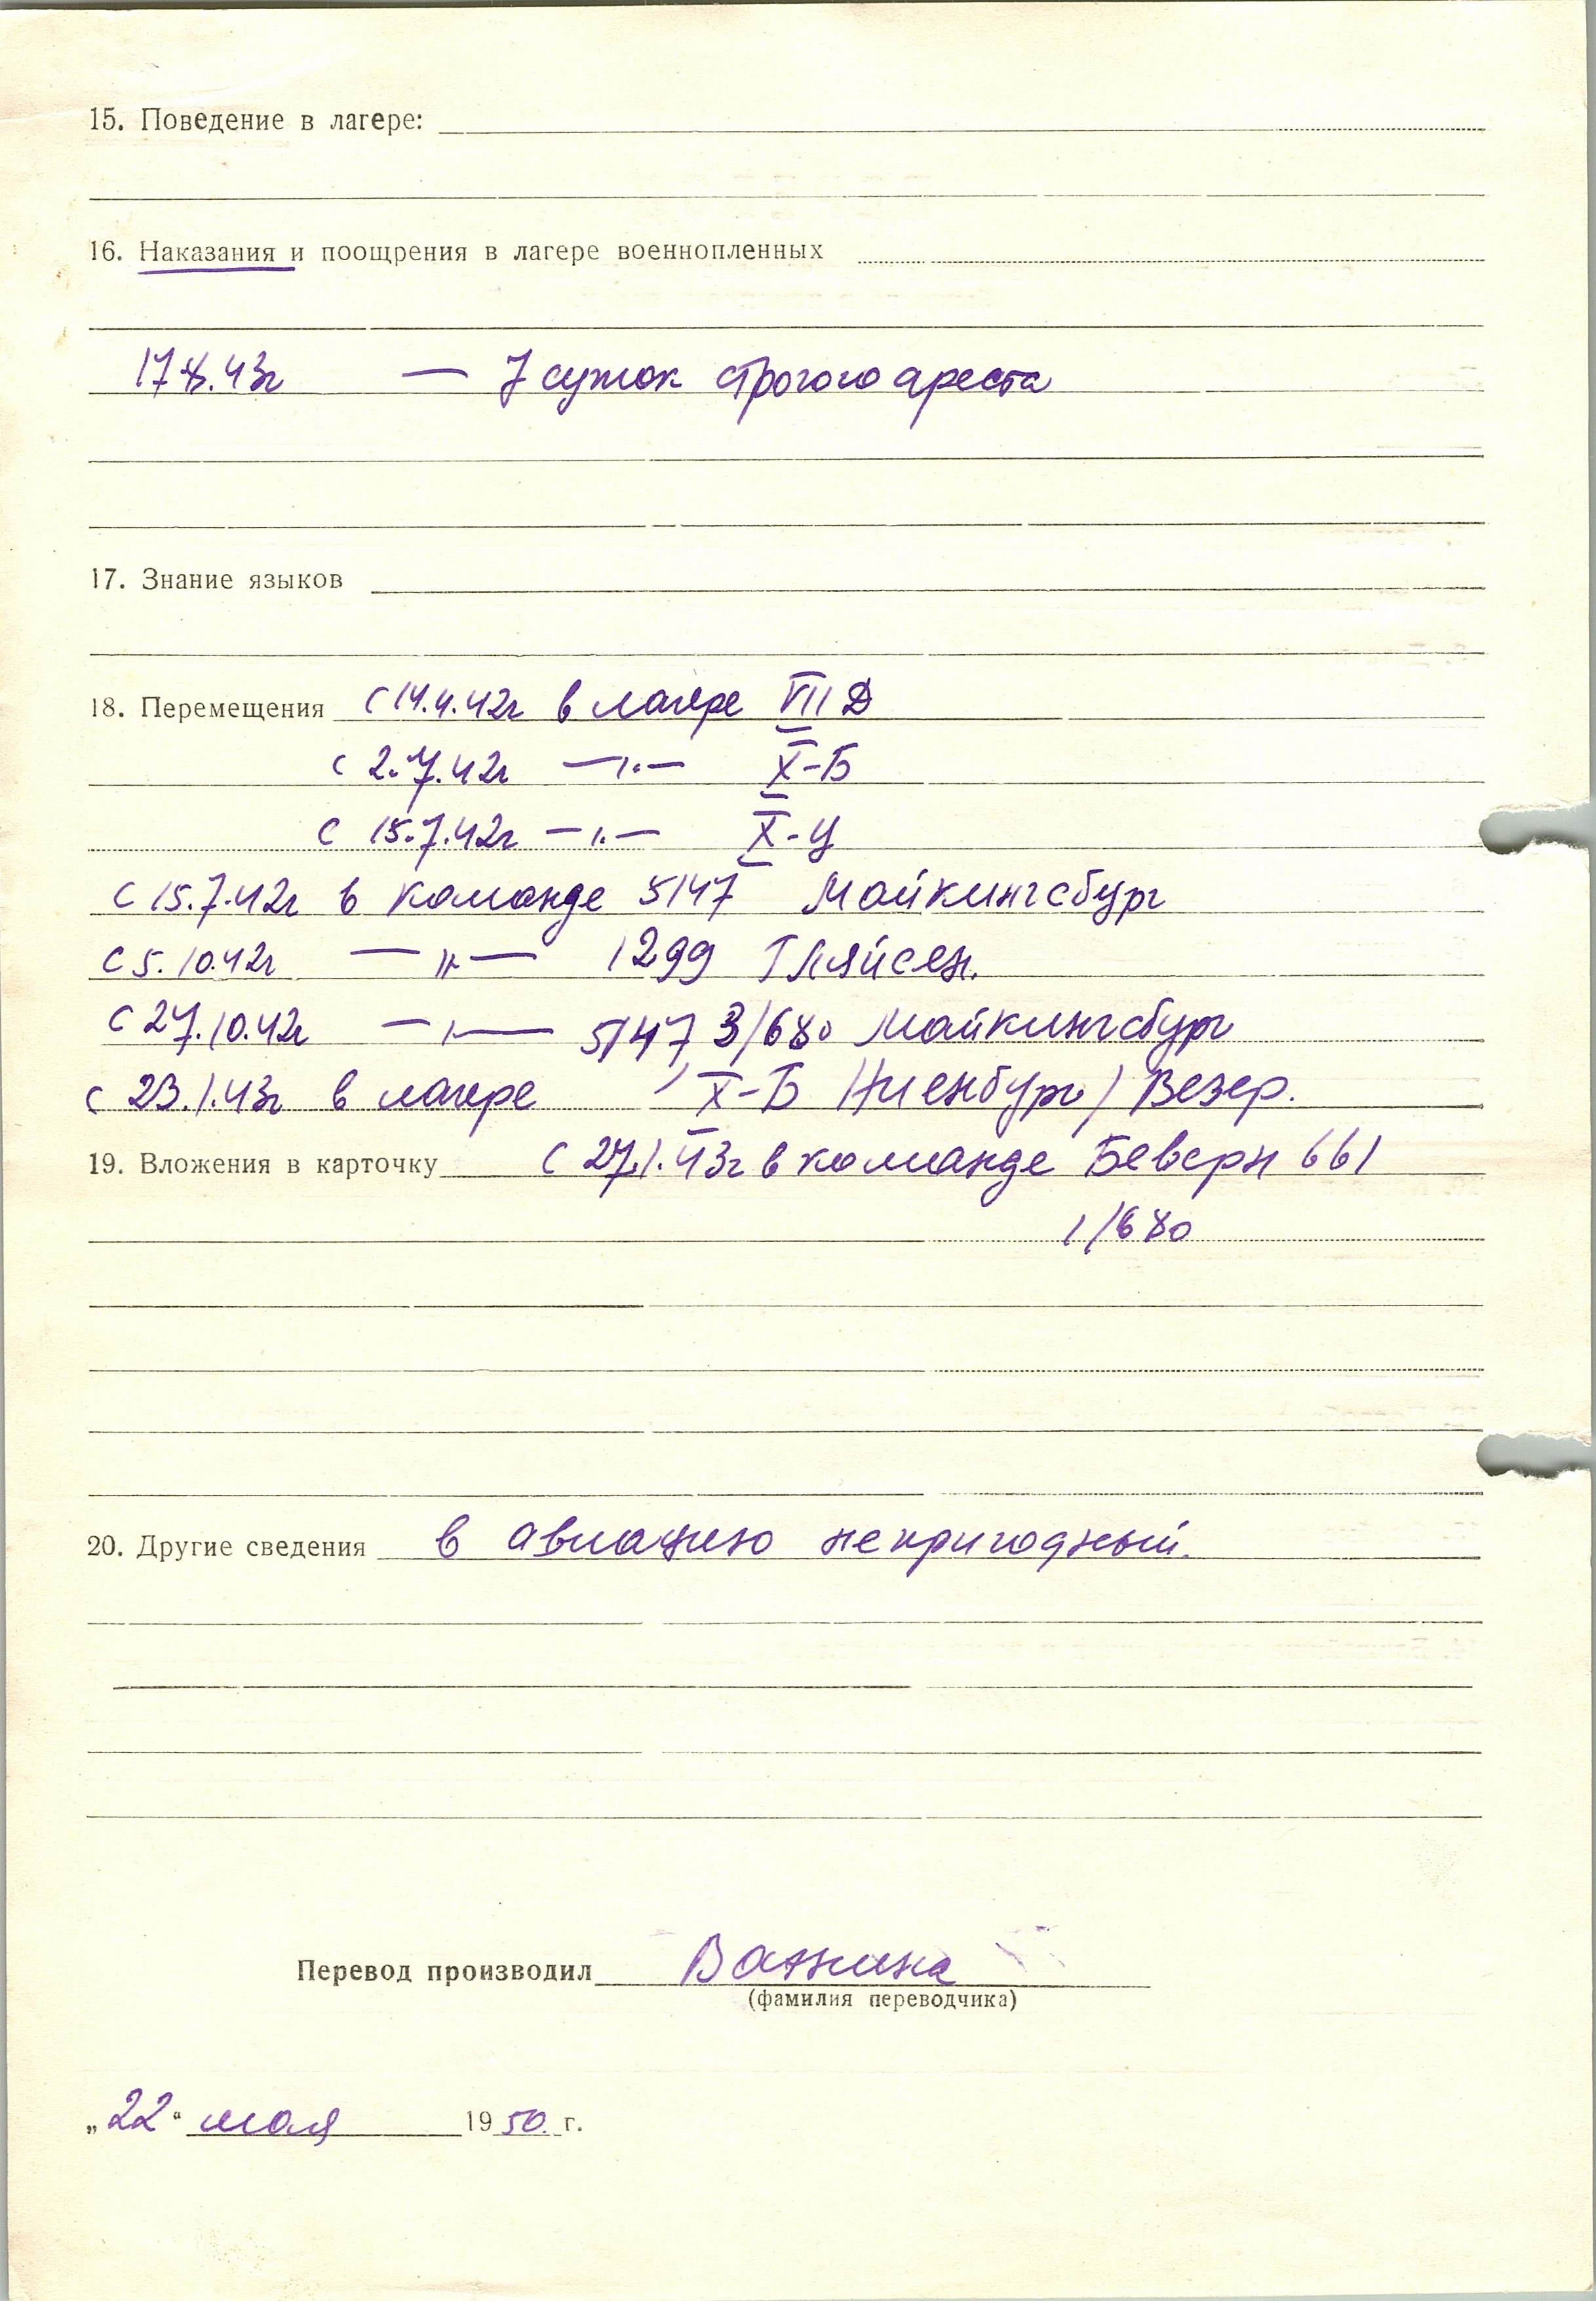 15. Поведение в лагере:
16. Наказания и поощрения в лагере военнопленных
17.8.43г — 7 суток строгого ареста
17. Знание языков
18. Перемещения с 14.4.42г в лагере VIII Д
с 2.7.42г —"— X-Б
с 15.7.42г —"— X-Ц
с 15.7.42г в команде 5147 Майкингсбург
с 5.10.42г —"— 1299 Гляйсен.
с 27.10.42г —"— 5147 3/680 Майкингсбург
с 23.1.43г в лагере X-Б /Ниенбург/ Везер.
19. Вложения в карточку с 27.1.43г в команде Беверн 661
1/680
20. Другие сведения в авиацию непригодный.
Перевод производил Ванина
(фамилия переводчика)
„22" мая 1950 г.